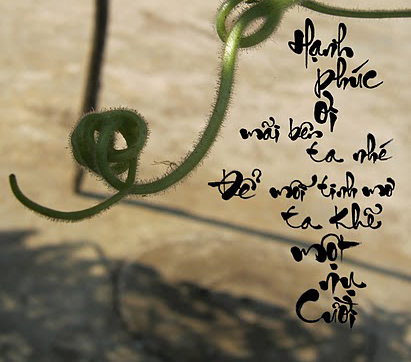 Hạnh
phúc
ơi
mãi bên
ta nhé
Để mỗi tinh mơ
ta khẽ
một
nụ
Cười